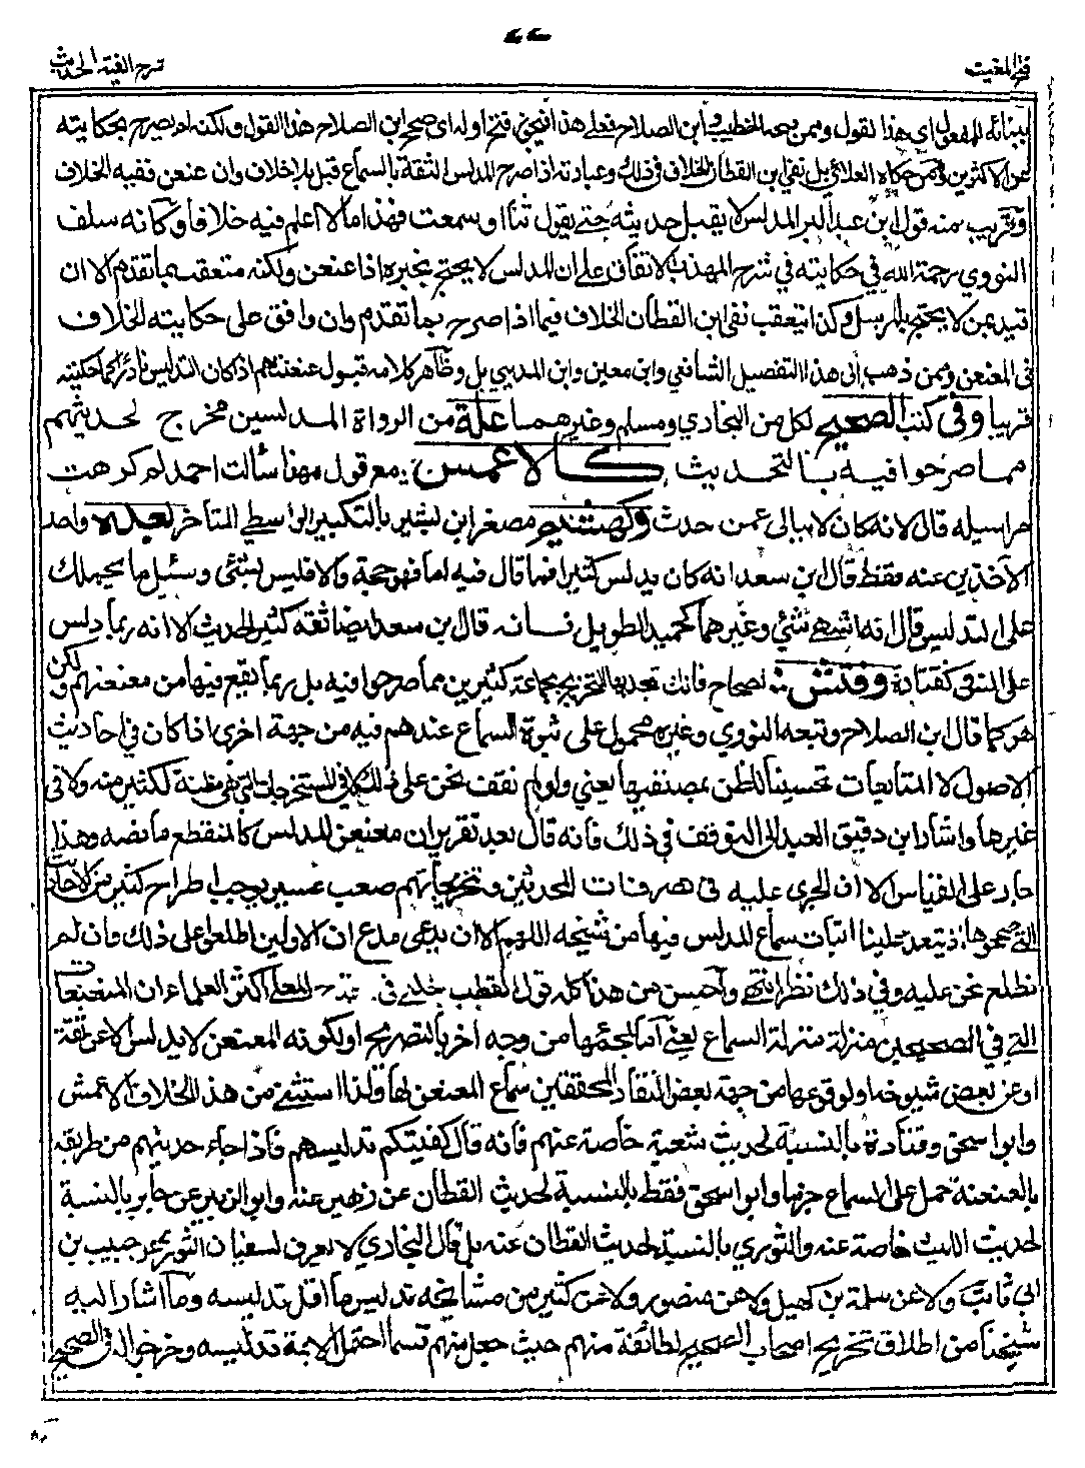 ٧٧
فتح المغيث
شرح الفية الحديث
ببنائه للمفعول اى هذا القول وممن صححه الخطيب وابن الصلاح فعلى هذا فتح اوله اى صحح ابن الصلاح هذا القول ولكنه لم يصرح بحكايته
عن الاكثرين وممن حكاه العلائى بل نفى ابن القطان الخلاف فى ذلك وعبارته اذا صرح المدلس الثقة بالسماع قبل بلا خلاف وان عنعن ففيه الخلاف
وقريب منه قول ابن عبد البر المدلس لا يقبل حديثه حتى يقول ثنا او سمعت فهذا ما لا اعلم فيه خلافا وكانه سلف
النووي رحمة الله في حكايته في شرح المهذب الاتفاق على ان المدلس لا يحتج بخبره اذا عنعن ولكنه متعقب بما تقدم الا ان
قيد بمن لا يحتج بالمرسل وكذا يتعقب نفى ابن القطان الخلاف فيما اذا صرح بما تقدم وان وافق على حكايته الخلاف
فى المعنعن وممن ذهب الى هذا التفصيل الشافعي وابن معين وابن المديني بل وظاهر كلامه قبول عنعنتهم اذا كان التدليس نادرا كما حكيته
قريبا وفى كتب الصحيح لكل من البخاري ومسلم وغيرهما عدة من الرواة المدلسين مخرج لحديثهم
مما صرحوا فيه بالتحديث كالاعمش مع قول مهنا سألت احمد لم كرهت
مراسيله قال لانه كان لا يبالى عمن حدث وكهشيم مصغر ابن بشير بالتكبير الواسطي المتأخر بعده واحد
الآخذين عنه فقط قال ابن سعد انه كان يدلس كثيرا فما قال فيه انا فهو حجة والا فليس بشئى وسئل ما يحملك
على التدليس قال انه اشهى شئي وغيرهما كحميد الطويل فانه قال ابن سعد ايضا ثقة كثير الحديث الا انه ربما دلس
على انس وكقتادة وفتش الصحاح فانك تجد بها التخريج لجماعة كثيرين مما صرحوا فيه بل ربما يقع فيها من معنعنهم ولكن
هو كما قال ابن الصلاح وتبعه النووي وغيره محمول على ثبوت السماع عندهم فيه من جهة اخرى اذا كان في احاديث
الاصول لا المتابعات تحسينا للظن بمصنفيها يعني ولو لم نقف نحن على ذلك لا في المستخرجات التي هي مظنة لكثير منه ولا في
غيرها واشار ابن دقيق العيد الى التوقف في ذلك فانه قال بعد تقرير ان معنعن المدلس كالمنقطع ما نصه وهذا
جار على القياس الا ان الجرى عليه فى تصرفات المحدثين وتخريجاتهم صعب عسير يوجب اطراح كثير من الاحاديث
التي صححوها اذ يتعذر علينا اثبات سماع المدلس فيها من شيخه اللهم الا ان يدعى مدع ان الاولين اطلعوا على ذلك وان لم
نطلع نحن عليه وفي ذلك نظر انتهى واحسن من هذا كله قول القطب الحلبي في المعلى اكثر العلماء ان المعنعنات
التي في الصحيحين منزلة منزلة السماع يعني اما لمجيئها من وجه اخر بالتصريح او لكونه المعنعن لا يدلس الا عن ثقة
او عن بعض شيوخه او لوقوعها من جهة بعض النقاد المحققين سماع المعنعن لها ولذا استثنى من هذا الخلاف الاعمش
وابو اسحق وقتادة بالنسبة لحديث شعبة خاصة عنهم فانه قال كفيتكم تدليسهم فاذا جاء حديثهم من طريقه
بالعنعنة حمل على السماع جزما وابو اسحق فقط بالنسبة لحديث القطان عن زهير عنه وابو الزبير عن جابر بالنسبة
لحديث الليث خاصة عنه والثوري بالنسبة لحديث القطان عنه بل قال البخاري لا يعرف لسفيان الثوري عن حبيب بن
ابي ثابت ولا عن سلمة بن كهيل ولا عن منصور ولا عن كثير من مشائخه تدليس ما اقل تدليسه وما اشار اليه
شيخنا من اطلاق تخريج اصحاب الصحيح لطائفة منهم حيث جعل منهم قسما احتمل الائمة تدليسه وخرجوا له فى الصحيح